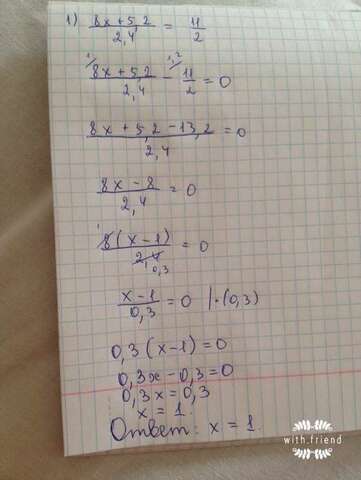 1) (8x+5,2)/2,4 = 11/2
¹/ (8x+5,2)/2,4 - ¹,²/ 11/2 = 0
(8x+5,2-13,2)/2,4 = 0
(8x-8)/2,4 = 0
¹ 8(x-1)/2,4 0,3 = 0
(x-1)/0,3 = 0 |·(0,3)
0,3(x-1)=0
0,3x-0,3=0
0,3x=0,3
x=1
Ответ: x=1.
with.friend